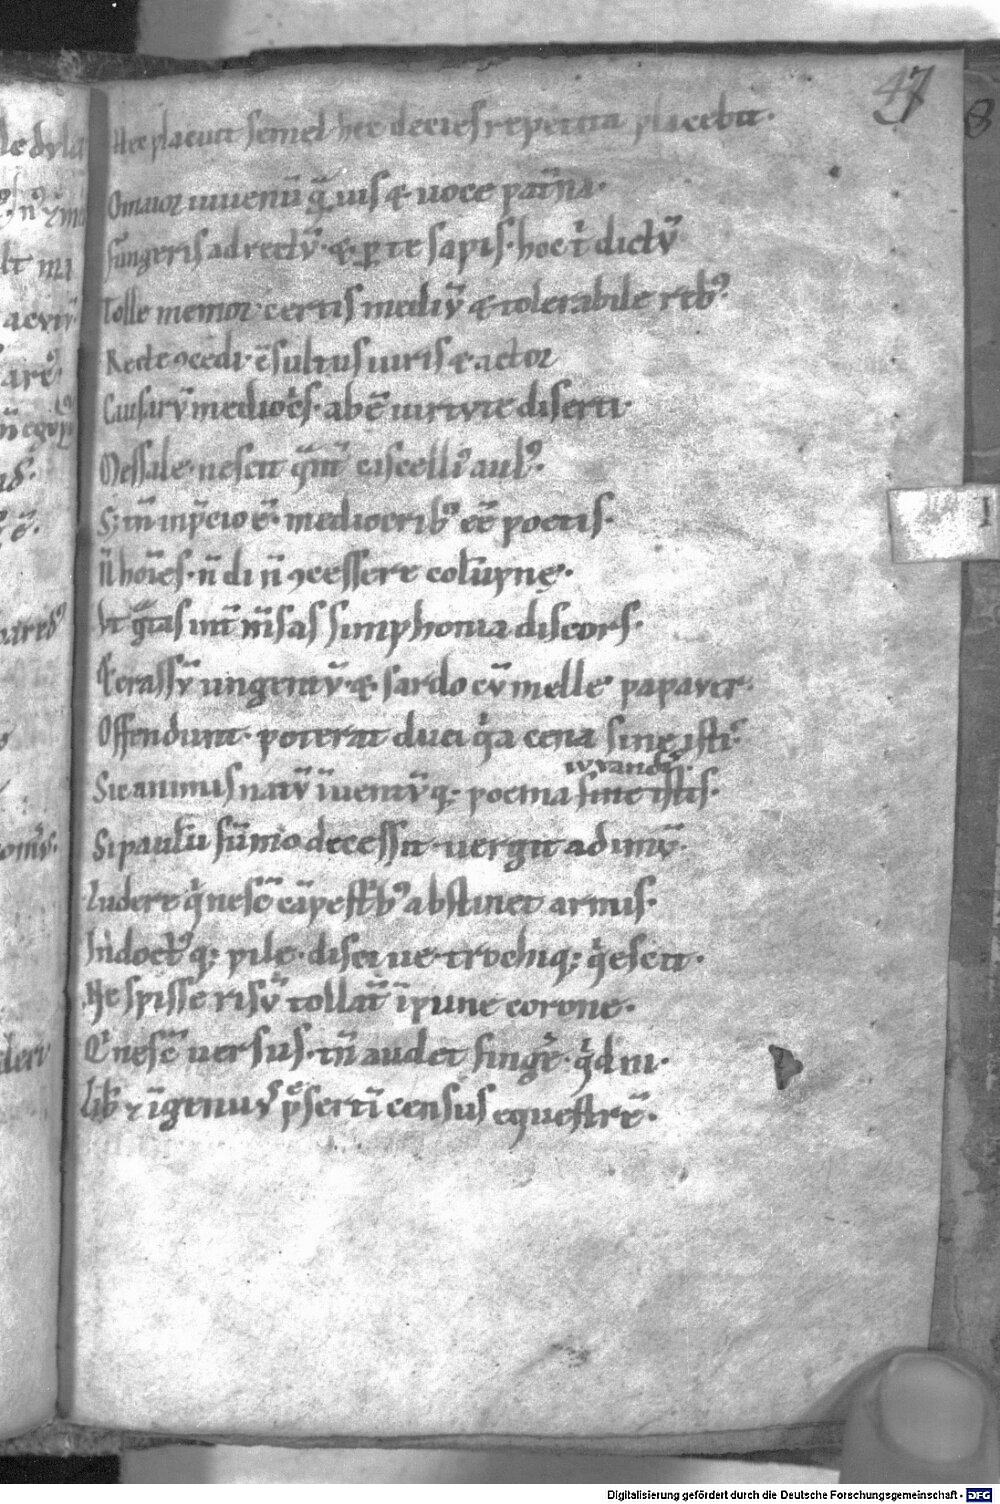 47
Hec placuit semel hec decies repetita placebit.
O maior iuuenū quāuis & uoce pat̄na.
fūngeris ad rectū. & ꝑ te sapis. hoc t̄ dictū
Tolle memor. certis mediū & tolerabile rebꝰ.
Recte ꝯcedi. c̄sultus iuris & actor
Causarū mediocͥs. abē uirtute diserti.
Messale. nescit qͣm̄ cascelliꝰ aulꝰ.
S; tm̄ in p̄cio ē. mediocribꝰ eē poetis.
n̄ hoīes. n̄ di n̄ ꝯcessere colūpnę.
Vt gͣtas int̄ m̄sas simphonia discors.
Et crassū ungentū. & sardo cū melle papauer.
Offendunt. poterat duci qͥa cena sine istiꝰ.
iuuandis.
Sic animus natū īuentūq. poema sine istis.
Si paulū sūmo decessit. uergit ad imū.
Ludere qͥ nesc̄ cāpestͥbꝰ abstinet armis.
Indoctꝰq; pile. disci ue. trochiq; qͥescit.
Ne spisse risū tollāt īpune corone.
Qͥ nesc̄ uersus. tn̄ audet fingͤr. qͥdni.
Lib̄ & īgenuꝰ p̄sertī census equestrē.
Digitalisierung gefördert durch die Deutsche Forschungsgemeinschaft - DFG